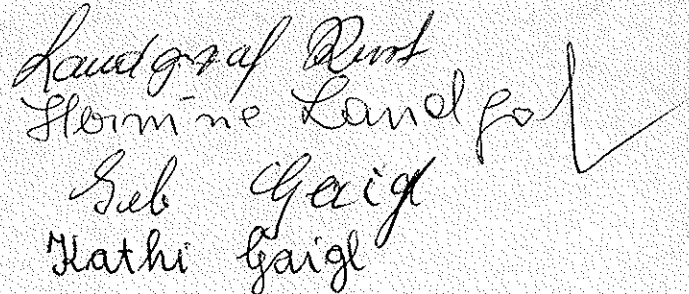 Landgraf Kurt
Hermine Landgraf
Geigl
Kathi Gaigl